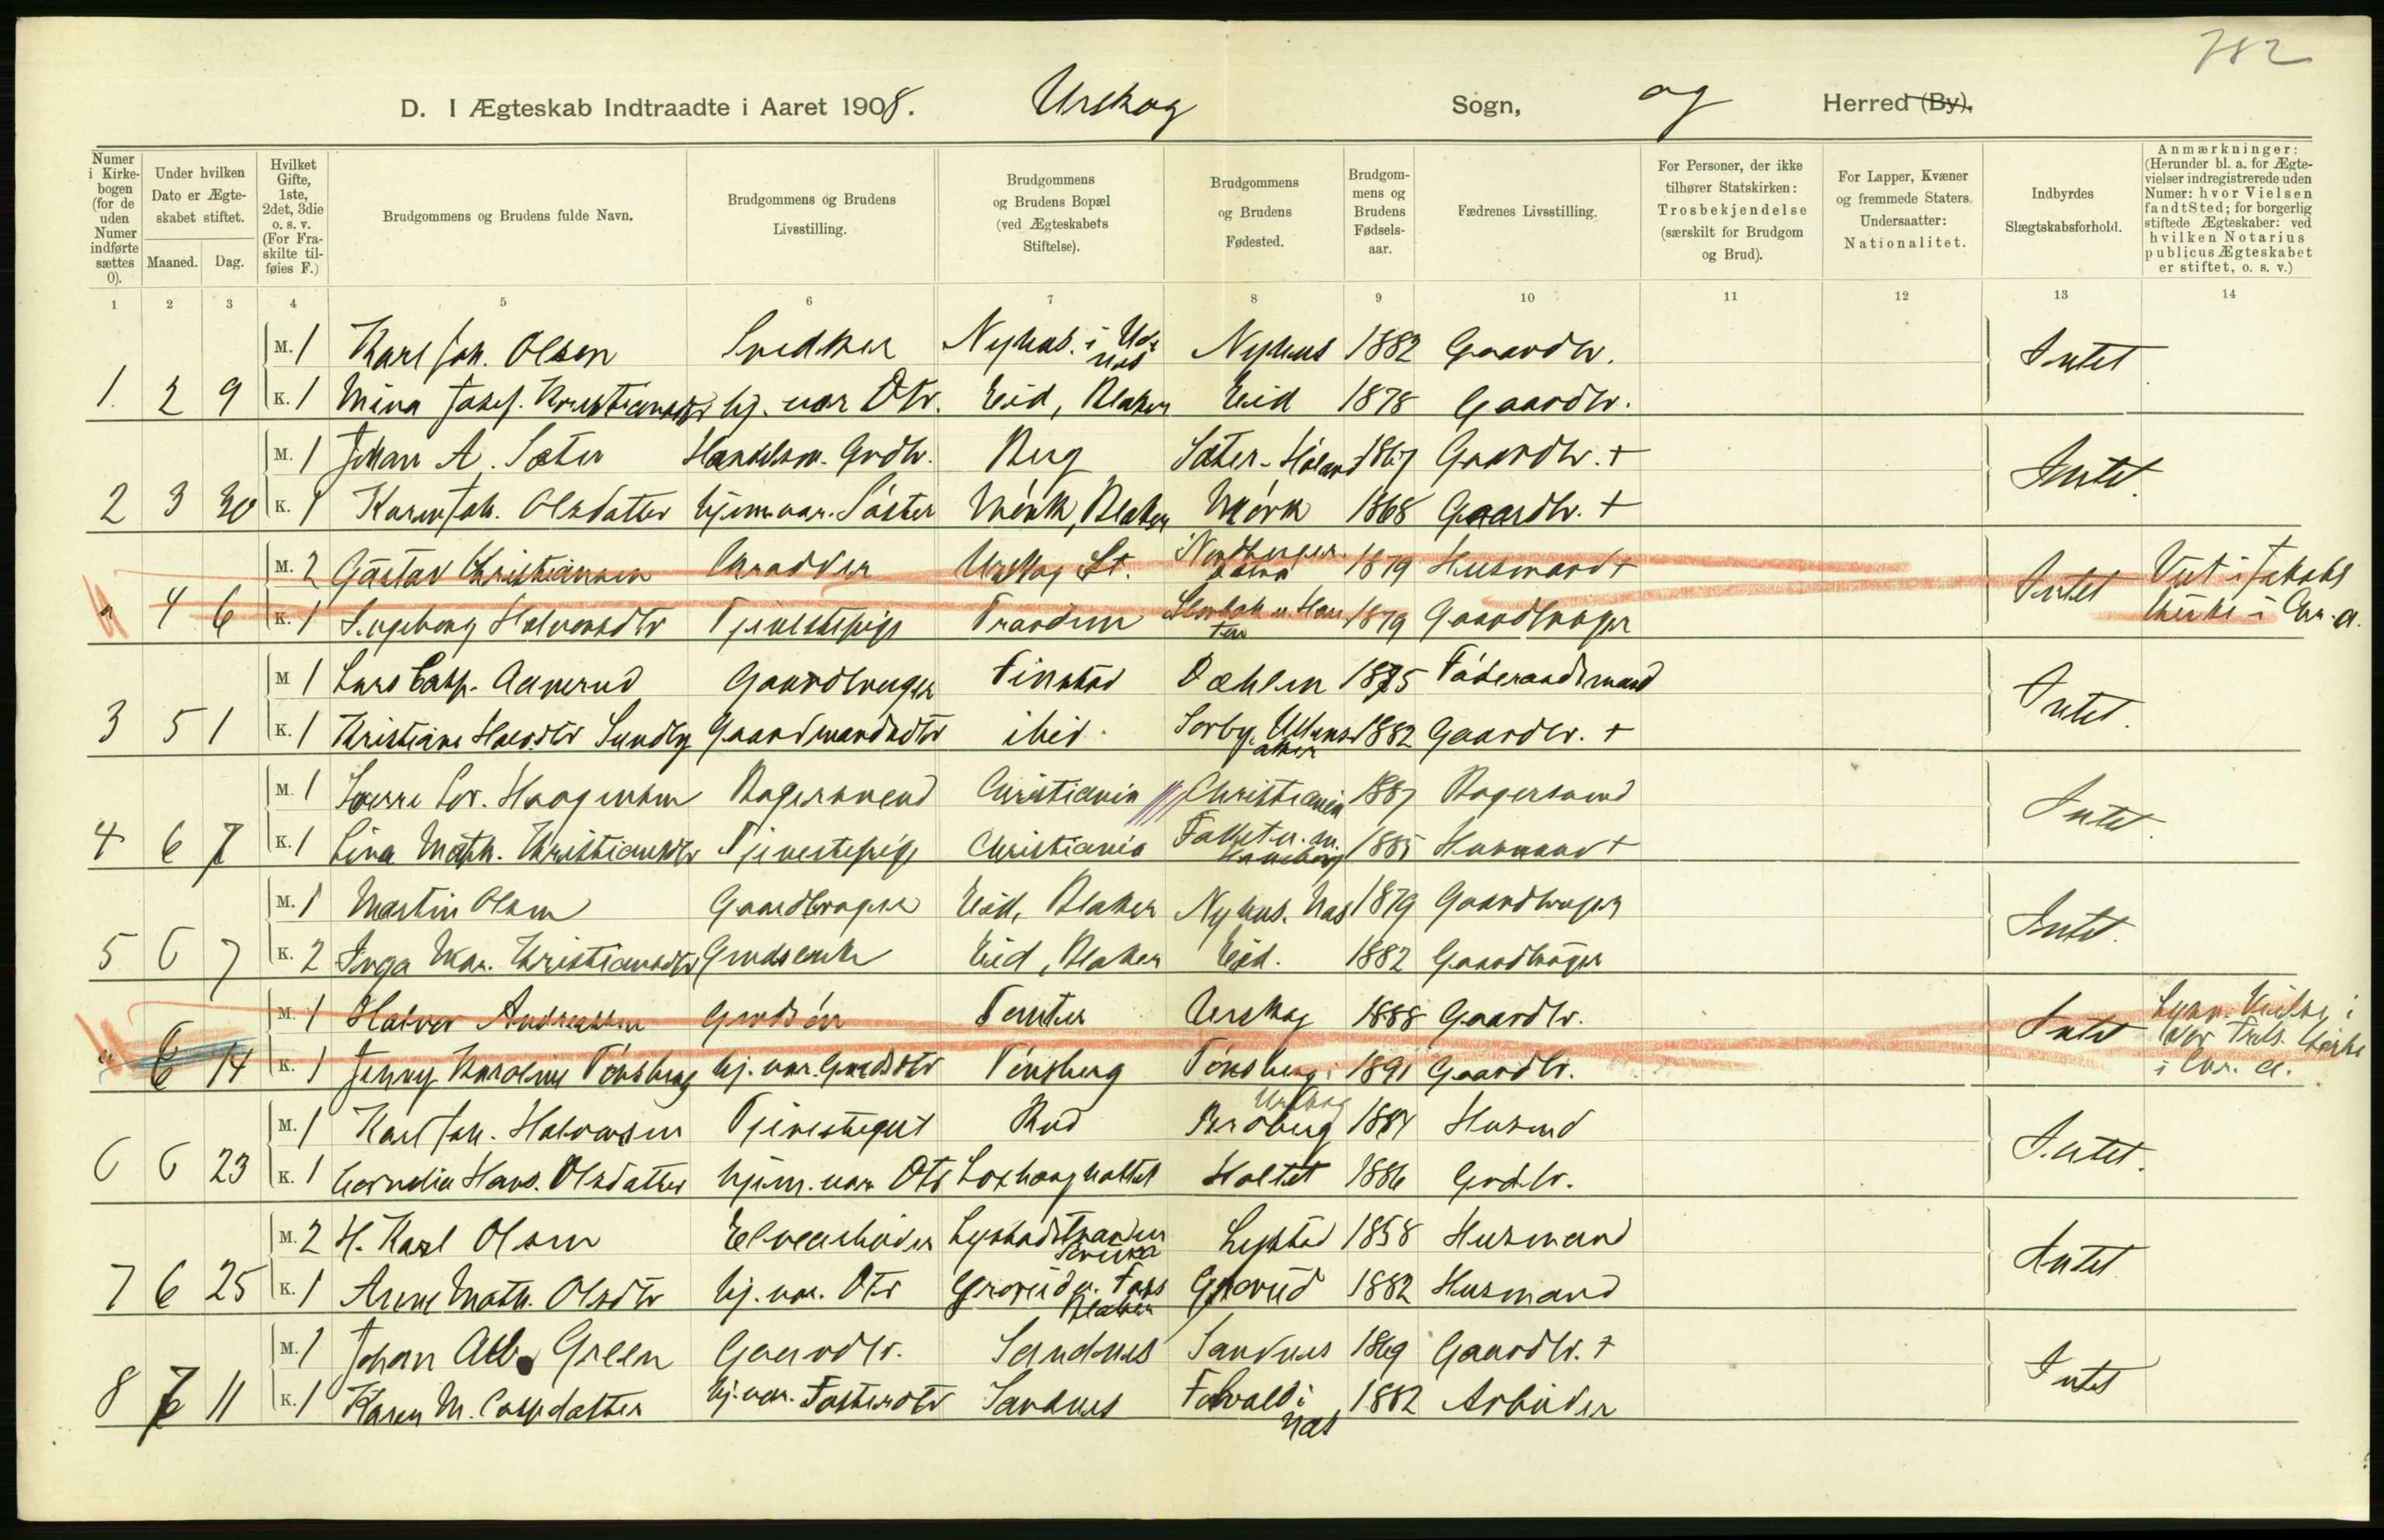 782
D. I Ægteskab Indtraadte i Aaret 1908. Urskog Sogn, og Herred (By).
Numer i Kirkebogen (for de uden Numer indførte sættes 0).
Under hvilken Dato er Ægteskabet stiftet.
Maaned. Dag.
Hvilket Gifte, 1ste, 2det, 3die o. s. v. (For Fraskilte tilføies F.)
Brudgommens og Brudens fulde Navn.
Brudgommens og Brudens Livsstilling.
Brudgommens og Brudens Bopæl (ved Ægteskabets Stiftelse).
Brudgommens og Brudens Fødested.
Brudgommens og Brudens Fødselsaar.
Fædrenes Livsstilling.
For Personer, der ikke tilhører Statskirken: Trosbekjendelse (særskilt for Brudgom og Brud).
For Lapper, Kvæner og fremmede Staters Undersaatter: Nationalitet.
Indbyrdes Slægtskabsforhold.
Anmærkninger: (Herunder bl. a. for Ægtevielser indregistrerede uden Numer: hvor Vielsen fandt Sted; for borgerlig stiftede Ægteskaber: ved hvilken Notarius publicus Ægteskabet er stiftet, o. s. v.)
1 2 3 4 5 6 7 8 9 10 11 12 13 14
M. 1 Karl Joh. Olsen Snedker Nyhus. i Nyhus 1882 Gaardbr. Intet
1. 2 9 K. 1 Mina Josef. Kristiansdtr hj. vær. Dtr. Eid, Blaker Eid 1878 Gaardbr.
M. 1 Johan A. Sæter Handelsm. Grdbr. Berg Sæter-Høland 1867 Gaardbr. + Intet.
2 3 30 K. 1 Karen Joh. Olsdatter hjemmevær. Søster Mørk, Blaker Mørk 1868 Gaardbr. +
M. 2 Gustav Christiansen Urskog St. 1879 Husmand + Intet Viet i Jakobs
4 6 K. 1 Ingeborg Halvorsdtr Tjenestepige Trandem 1879 Gaardbruger kirke i Chr.a.
M 1 Lars Casp. Aamerud Gaardbruger Finstad Dæhlen 1875 Føderaadsmand Intet.
3 5 1 K. 1 Kristiane Halv.dtr Sundby Gaardmandsdtr ibid. Sørby, Ullensaker 1882 Gaardbr. +
M. 1 Sverre Lor. Haagensen Bagersvend Christiania Christiania 1887 Bagersvend Intet.
4 6 7 K. 1 Lina Math. Kristiansdtr Tjenestepige Christiania 1885 Husmand +
M. 1 Martin Olsen Gaardbruger Eid, Blaker Nyhus. Næs 1879 Gaardbruger Intet.
5 6 7 K. 2 Inga Mar. Kristiansdtr Grdsenke Eid, Blaker Eid. 1882 Gaardbruger
M. 1 Halvor Andreassen Grdsøn Tomter Urskog 1888 Gaardbr. Intet Lysn. Vielse i
" 6 14 K. 1 Jenny Karoline Tønsberg hj. vær. Grdsdtr Tønsberg Tønsberg i 1891 Gaardbr. Vor Frels. kirke
Urskog i Chr. a.
M. 1 Karl Joh. Halvorsen Tjenestegut Rud 1884 Husmd Intet.
6 6 23 K. 1 Cornelia Hans. Olsdatter hjem. vær. Dtr Holtet 1886 Grdbr.
M. 2 H. Karl Olsen Lystad 1858 Husmand Intet
7 6 25 K. 1 Anne Math. Olsdtr hj. vær. Dtr Grorud u. Foss Blaker Grorud 1882 Husmand
M. 1 Johan Alb. Green Gaardbr. Sandnes Sandnes 1869 Gaardbr. + Intet
8 7 11 K. 1 Karen M. Caspdatter hj. vær. Fosterdtr Sandnes i Næs 1882 Arbeider